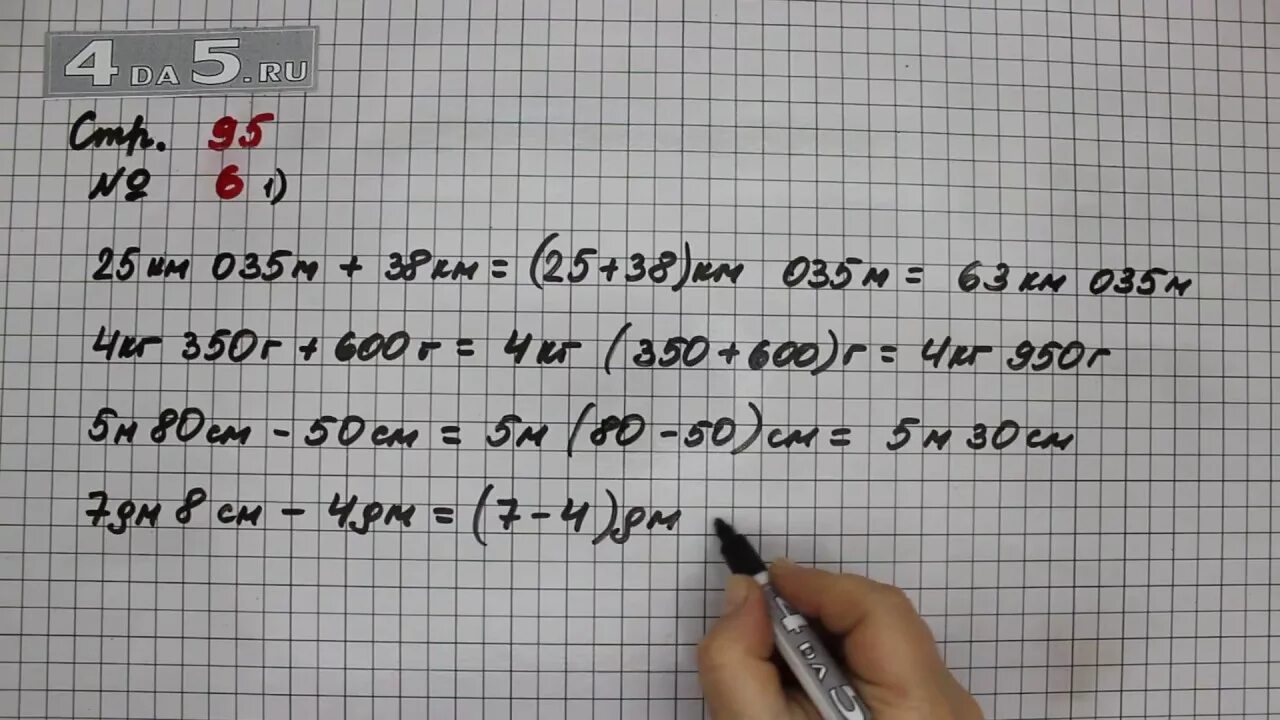 4DA5.RU
Стр. 95
№ 6 1)
25км 035м + 38км = (25+38)км 035м = 63км 035м
4кг 350г + 600г = 4кг (350+600)г = 4кг 950г
5м 80см - 50см = 5м (80-50)см = 5м 30см
7дм 8см - 4дм = (7-4)дм
4DA5